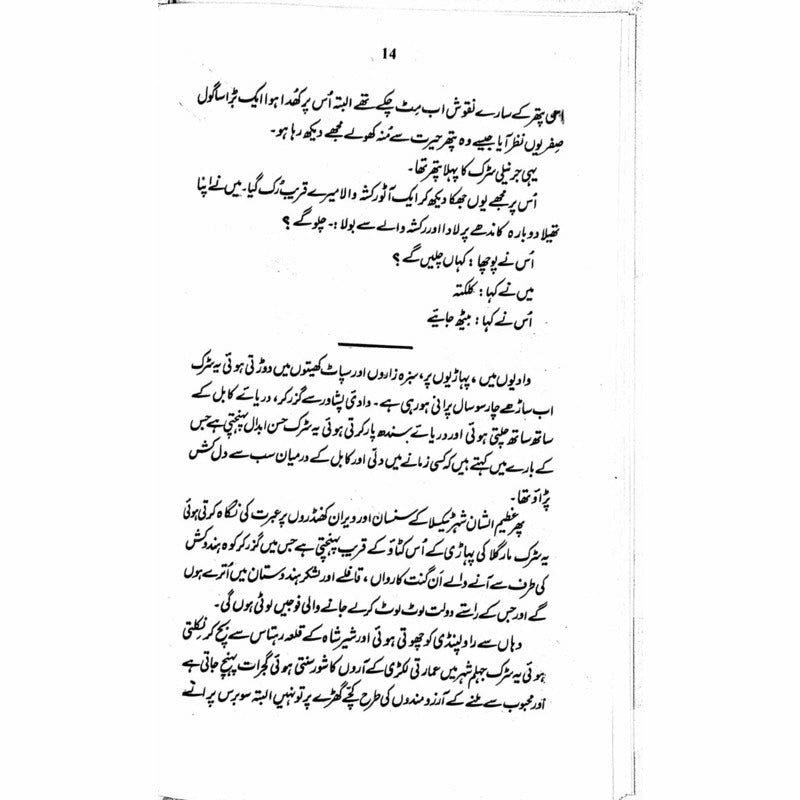 14
اسی پتھر کے سارے نقوش اب مٹ چکے تھے البتہ اُس پر کھُدا ہوا ایک بڑا سا گول
صِفر یوں نظر آیا جیسے وہ پتھر حیرت سے مُنہ کھولے مجھے دیکھ رہا ہو۔
یہی جرنیلی سڑک کا پہلا پتھر تھا۔
اُس پر مجھے یوں جھکا دیکھ کر ایک آٹو رکشہ والا میرے قریب رُک گیا۔ میں نے اپنا
تھیلا دوبارہ کاندھے پر لادا اور رکشہ والے سے بولا:۔ چلو گے ؟
اُس نے پوچھا : کہاں چلیں گے ؟
میں نے کہا : کلکتہ
اُس نے کہا : بیٹھ جایئے
وادیوں میں، پہاڑیوں پر، سبزہ زاروں اور سپاٹ کھیتوں میں دوڑتی ہوئی یہ سڑک
اب ساڑھے چار سو سال پرانی ہو رہی ہے۔ وادیٔ پشاور سے گزر کر، دریائے کابل کے
ساتھ ساتھ چلتی ہوئی اور دریائے سندھ پار کرتی ہوئی یہ سڑک حسن ابدال پہنچتی ہے جس
کے بارے میں کہتے ہیں کہ کسی زمانے میں دلّی اور کابل کے درمیان سب سے دل کش
پڑاؤ تھا۔
پھر عظیم الشان شہر ٹیکسلا کے سنسان اور ویران کھنڈروں پر عبرت کی نگاہ کرتی ہوئی
یہ سڑک مارگلا کی پہاڑی کے اُس کٹاؤ کے قریب پہنچتی ہے جس میں گزر کر کوہ ہندوکش
کی طرف سے آنے والے اَن گنت کارواں، قافلے اور لشکر ہندوستان میں اُترے ہوں
گے اور جس کے راستے دولت لوٹ لوٹ کر لے جانے والی فوجیں لوٹی ہوں گی۔
وہاں سے راولپنڈی کو چھوتی ہوئی اور شیر شاہ کے قلعہ رہتاس سے بچ کر نکلتی
ہوئی یہ سڑک جہلم شہر میں عمارتی لکڑی کے آروں کا شور سنتی ہوئی گجرات پہنچ جاتی ہے
اور محبوب سے ملنے کے آرزو مندوں کی طرح کچے گھڑے پر تو نہیں البتہ سو برس پرانے